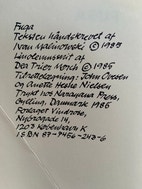 Fuga
Teksten håndskrevet af
Ivan Malinowski © 1985
Linoleumssnit af
Dea Trier Mørch © 1985
Titeltegning: John Ovesen
og Anette Hesbo Nielsen
Trykt hos Narayana Press,
Gylling, Danmark 1985
Forlaget Vindrose,
Nybrogade 14,
1203 København K
ISBN 87-7456-243-6